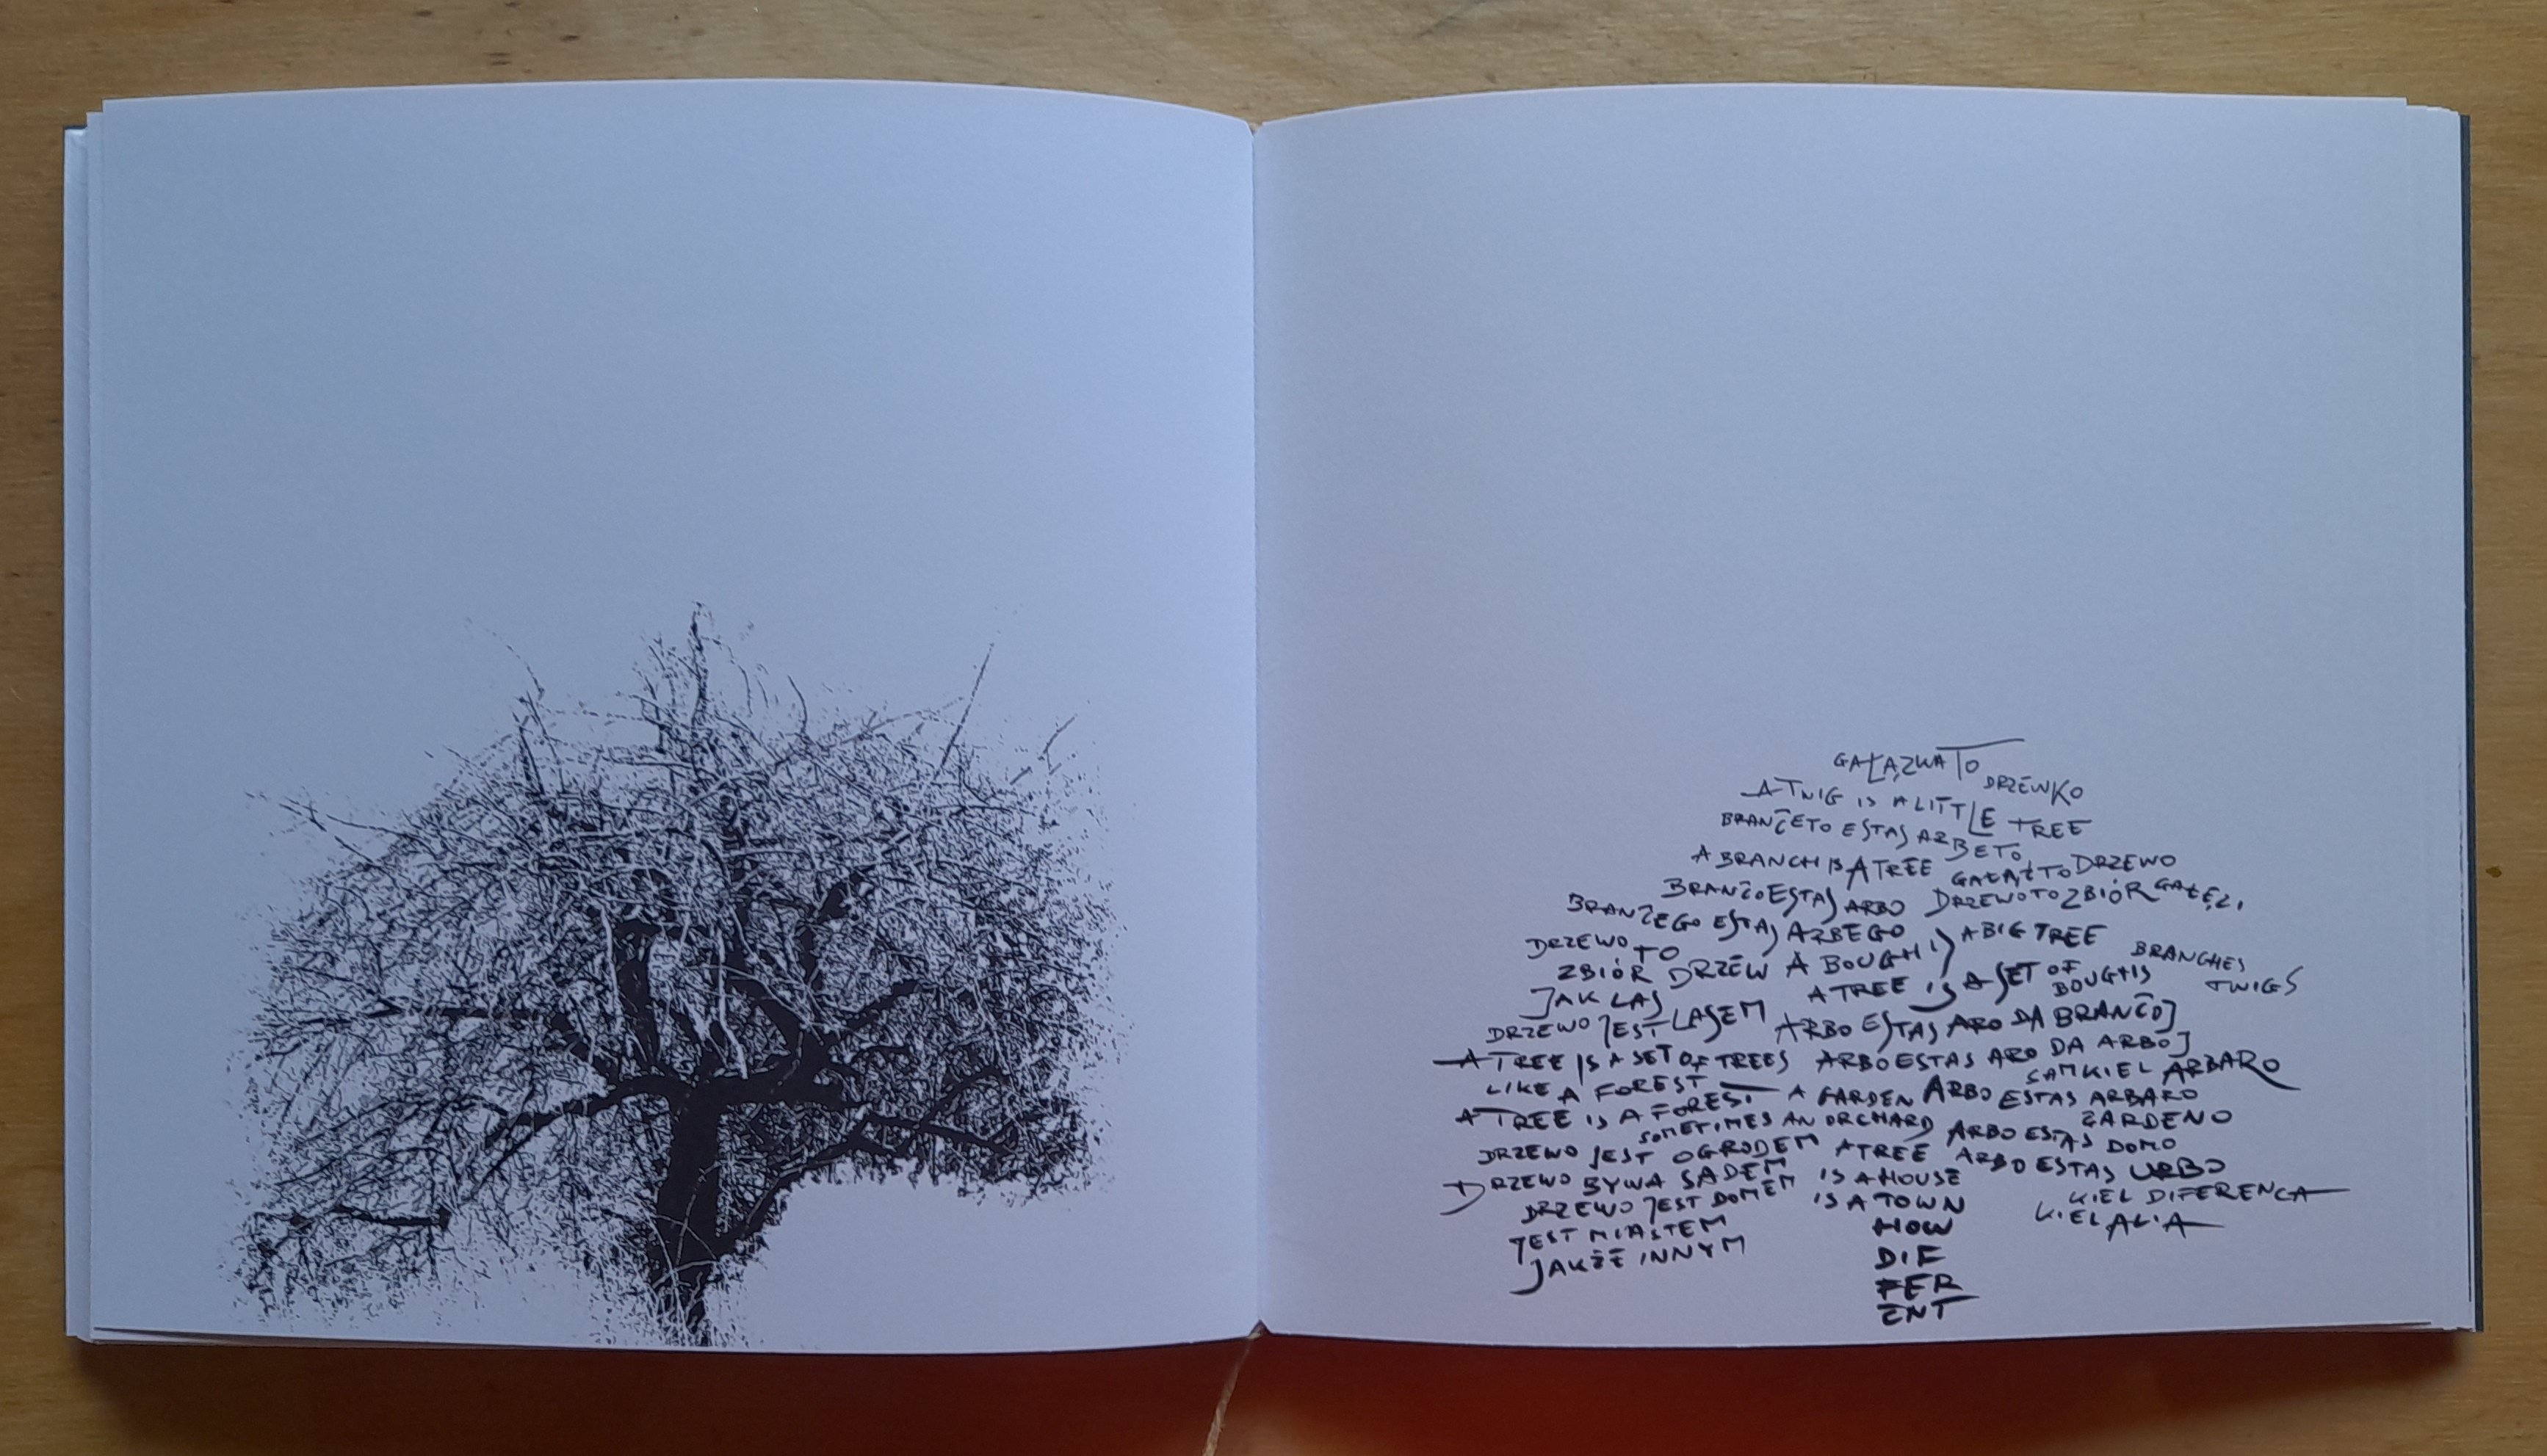 GAŁĄZKA TO DRZEWKO
A TWIG IS A LITTLE TREE
BRANĈETO ESTAS ARBETO
A BRANCH IS A TREE GAŁĄŹ TO DRZEWO
BRANĈO ESTAS ARBO DRZEWO TO ZBIÓR GAŁĘZI
BRANĈEGO ESTAS ARBEGO
DRZEWO TO ZBIÓR DRZEW A BOUGH IS A BIG TREE
JAK LAS A TREE IS A SET OF BOUGHS BRANCHES TWIGS
DRZEWO JEST LASEM ARBO ESTAS ARO DA BRANĈOJ
A TREE IS A SET OF TREES ARBO ESTAS ARO DA ARBOJ
LIKE A FOREST SAMKIEL ARBARO
A TREE IS A FOREST A GARDEN ARBO ESTAS ARBARO
SOMETIMES AN ORCHARD ĜARDENO
DRZEWO JEST OGRODEM A TREE ARBO ESTAS DOMO
DRZEWO BYWA SADEM IS A HOUSE ARBO ESTAS URBO
DRZEWO JEST DOMEM IS A TOWN KIEL DIFERENCA
JEST MIASTEM HOW KIEL ALIA
JAKŻE INNYM DIF
FER
ENT